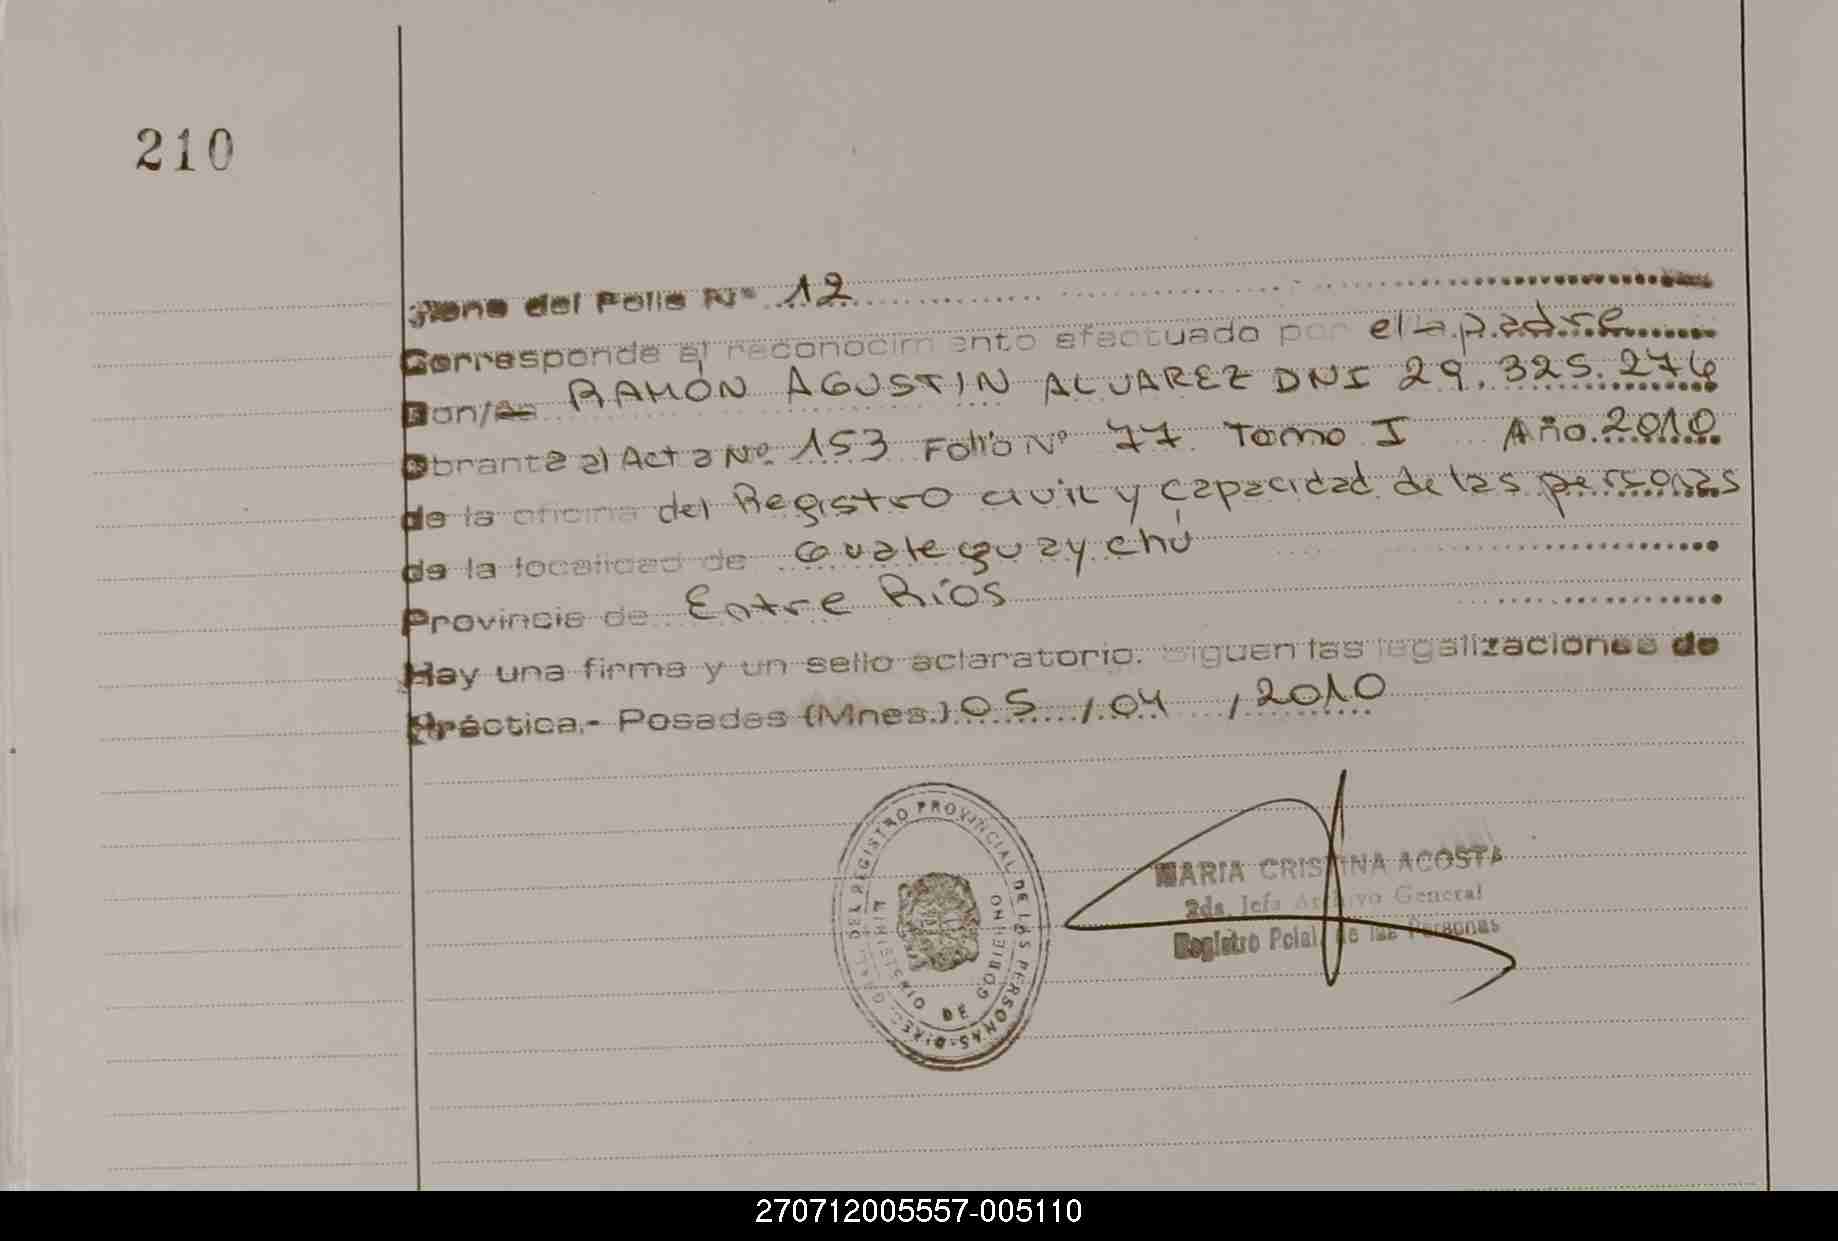 210
Viene del Folio Nº 12
Corresponde al reconocimiento efectuado por el la padre
Don/ña RAMÓN AGUSTIN ALVAREZ DNI 29.325.276
Obrante al Acta Nº 153 Folio Nº 77 Tomo I Año 2010
de la oficina del Registro civil y capacidad de las personas
de la localidad de Gualeguaychú
Provincia de Entre Ríos
Hay una firma y un sello aclaratorio. Siguen las legalizaciones de
Práctica.- Posadas (Mnes.) 05 / 04 / 2010
DEL REGISTRO PROVINCIAL DE LAS PERSONAS
MINISTERIO DE GOBIERNO
MARIA CRISTINA ACOSTA
2da. Jefa Archivo General
Registro Pcial. de las Personas
270712005557-005110